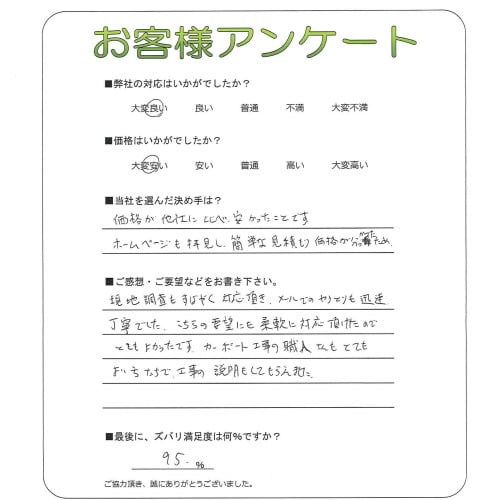 お客様アンケート
■弊社の対応はいかがでしたか？
大変良い 良い 普通 不満 大変不満
■価格はいかがでしたか？
大変安い 安い 普通 高い 大変高い
■当社を選んだ決め手は？
価格が他社に比べ、安かったことです
ホームページも拝見し、簡単な見積もり価格が分かったため。
■ご感想・ご要望などをお書き下さい。
現地調査もすばやく対応頂き、メールでのやりとりも迅速
丁寧でした。こちらの要望にも柔軟に対応頂けたので
とてもよかったです。カーポート工事の職人さんもとても
よい方で、工事の説明もしてもらえました。
■最後に、ズバリ満足度は何%ですか？
95. %
ご協力頂き、誠にありがとうございました。